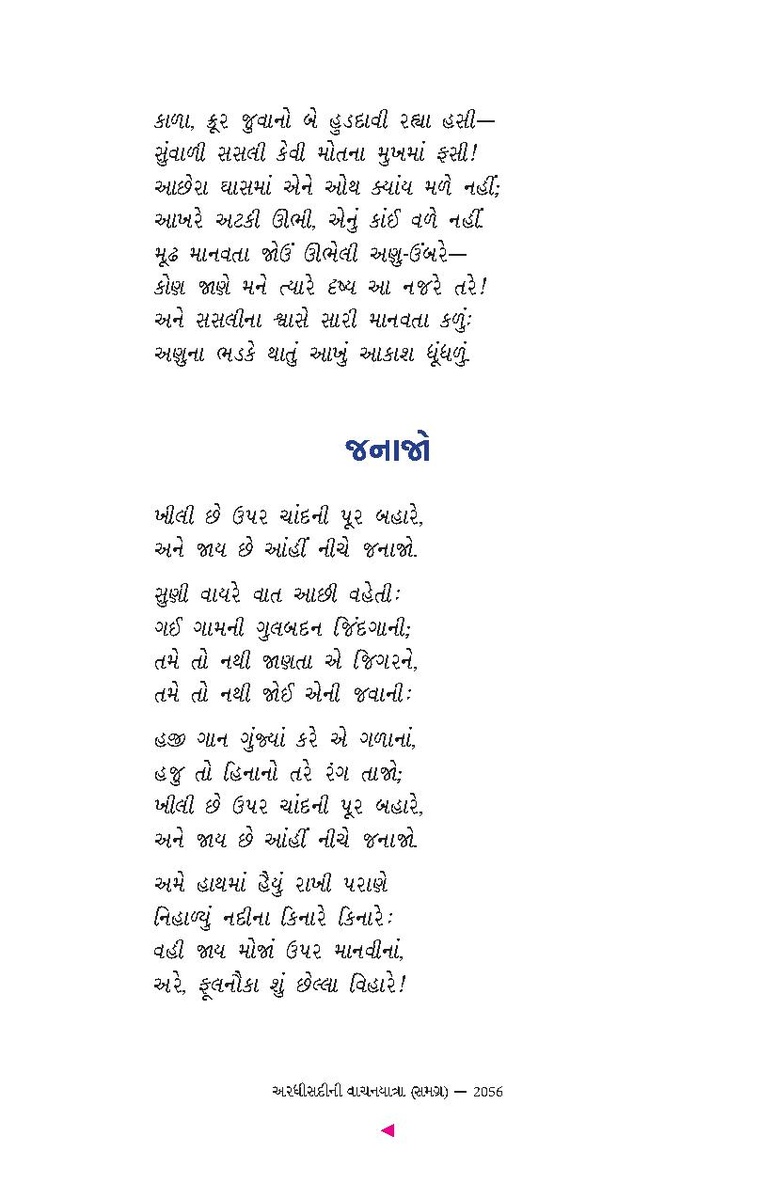 કાળા, ક્રૂર જુવાનો બે હુડદાવી રહ્યા હસી—
સુંવાળી સસલી કેવી મોતના મુખમાં ફસી!
આછેરા ઘાસમાં એને ઓથ ક્યાંય મળે નહીં;
આખરે અટકી ઊભી, એનું કાંઈ વળે નહીં.
મૂઢ માનવતા જોઉં ઊભેલી અણુ-ઉંબરે—
કોણ જાણે મને ત્યારે દૃષ્ય આ નજરે તરે!
અને સસલીના શ્વાસે સારી માનવતા કળુંઃ
અણુના ભડકે થાતું આખું આકાશ ધૂંધળું.
જનાજો
ખીલી છે ઉપર ચાંદની પૂર બહારે,
અને જાય છે આંહીં નીચે જનાજો.
સુણી વાયરે વાત આછી વહેતીઃ
ગઈ ગામની ગુલબદન જિંદગાની;
તમે તો નથી જાણતા એ જિગરને,
તમે તો નથી જોઈ એની જવાનીઃ
હજી ગાન ગુંજ્યાં કરે એ ગળાનાં,
હજુ તો હિનાનો તરે રંગ તાજો;
ખીલી છે ઉપર ચાંદની પૂર બહારે,
અને જાય છે આંહીં નીચે જનાજો.
અમે હાથમાં હૈયું રાખી પરાણે
નિહાળ્યું નદીના કિનારે કિનારેઃ
વહી જાય મોજાં ઉપર માનવીનાં,
અરે, ફૂલનૌકા શું છેલ્લા વિહારે!
અરધીસદીની વાચનયાત્રા (સમગ્ર) — 2056